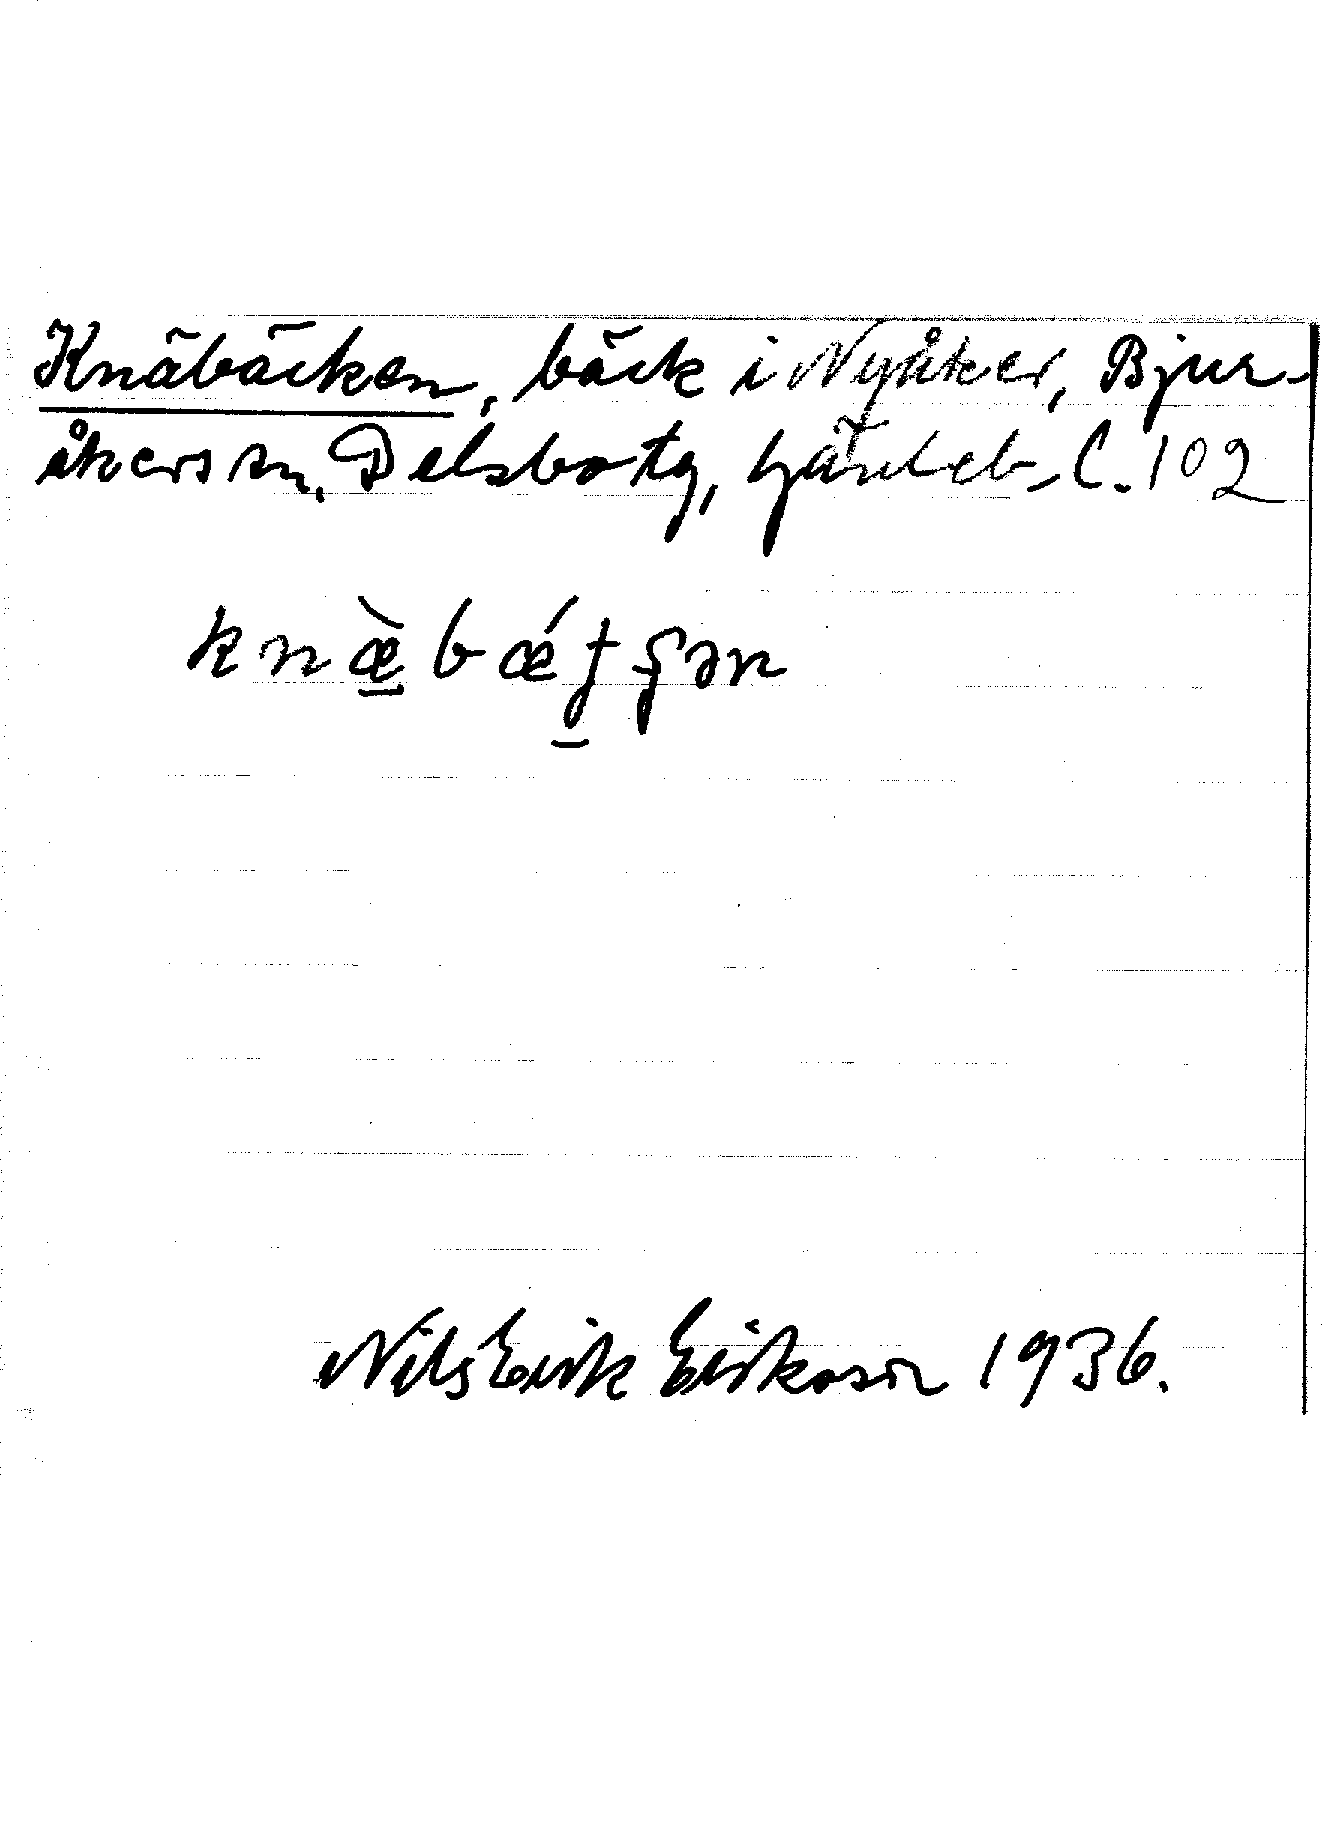 Knäbäcken, bäck i Nyåker, Bjur-
åkers sn, Delsbo tg, Gävleb. l. 102
knæ̀bǽtʃən
Nils Erik Eriksson 1936.